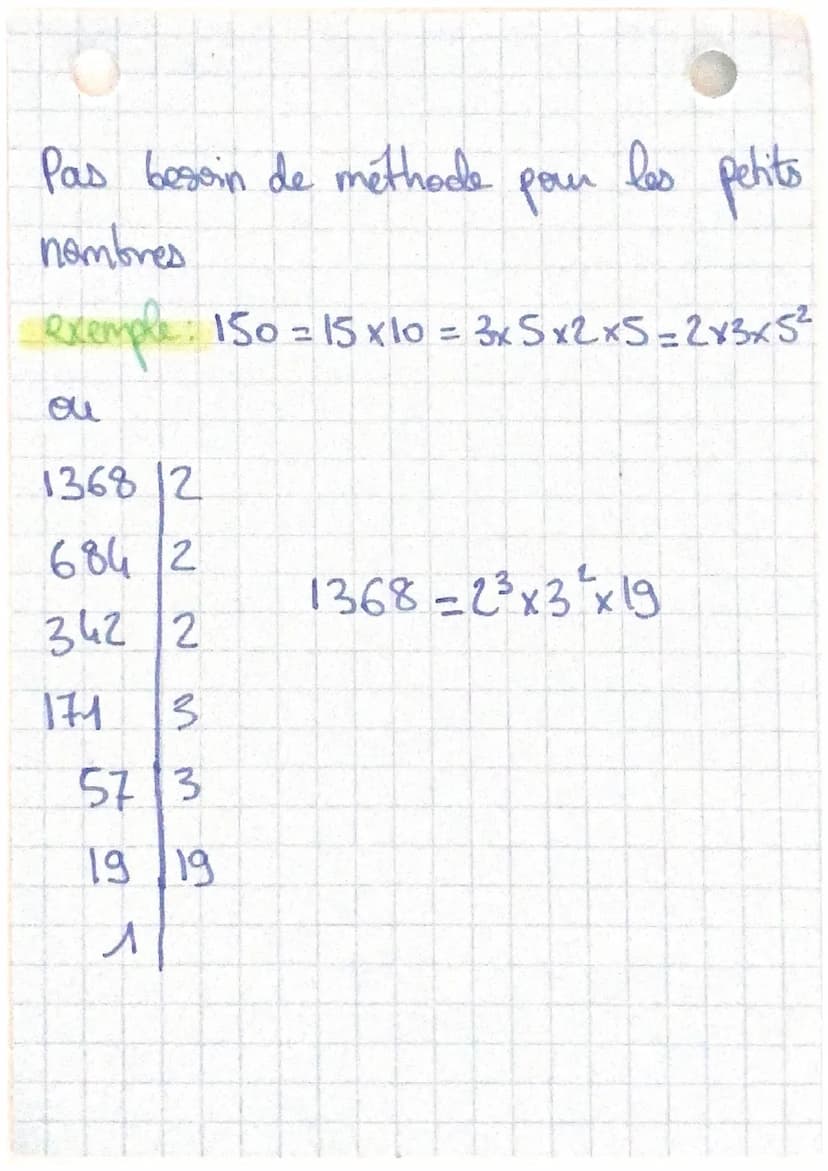 Pas besoin de méthode pour les petits
nombres
exemple: 150 = 15 x 10 = 3x 5 x 2 x 5 = 2x3x5²
ou
1368 | 2
684 | 2
342 | 2
1368 = 2³ x 3² x 19
171 | 3
57 | 3
19 | 19
1 |